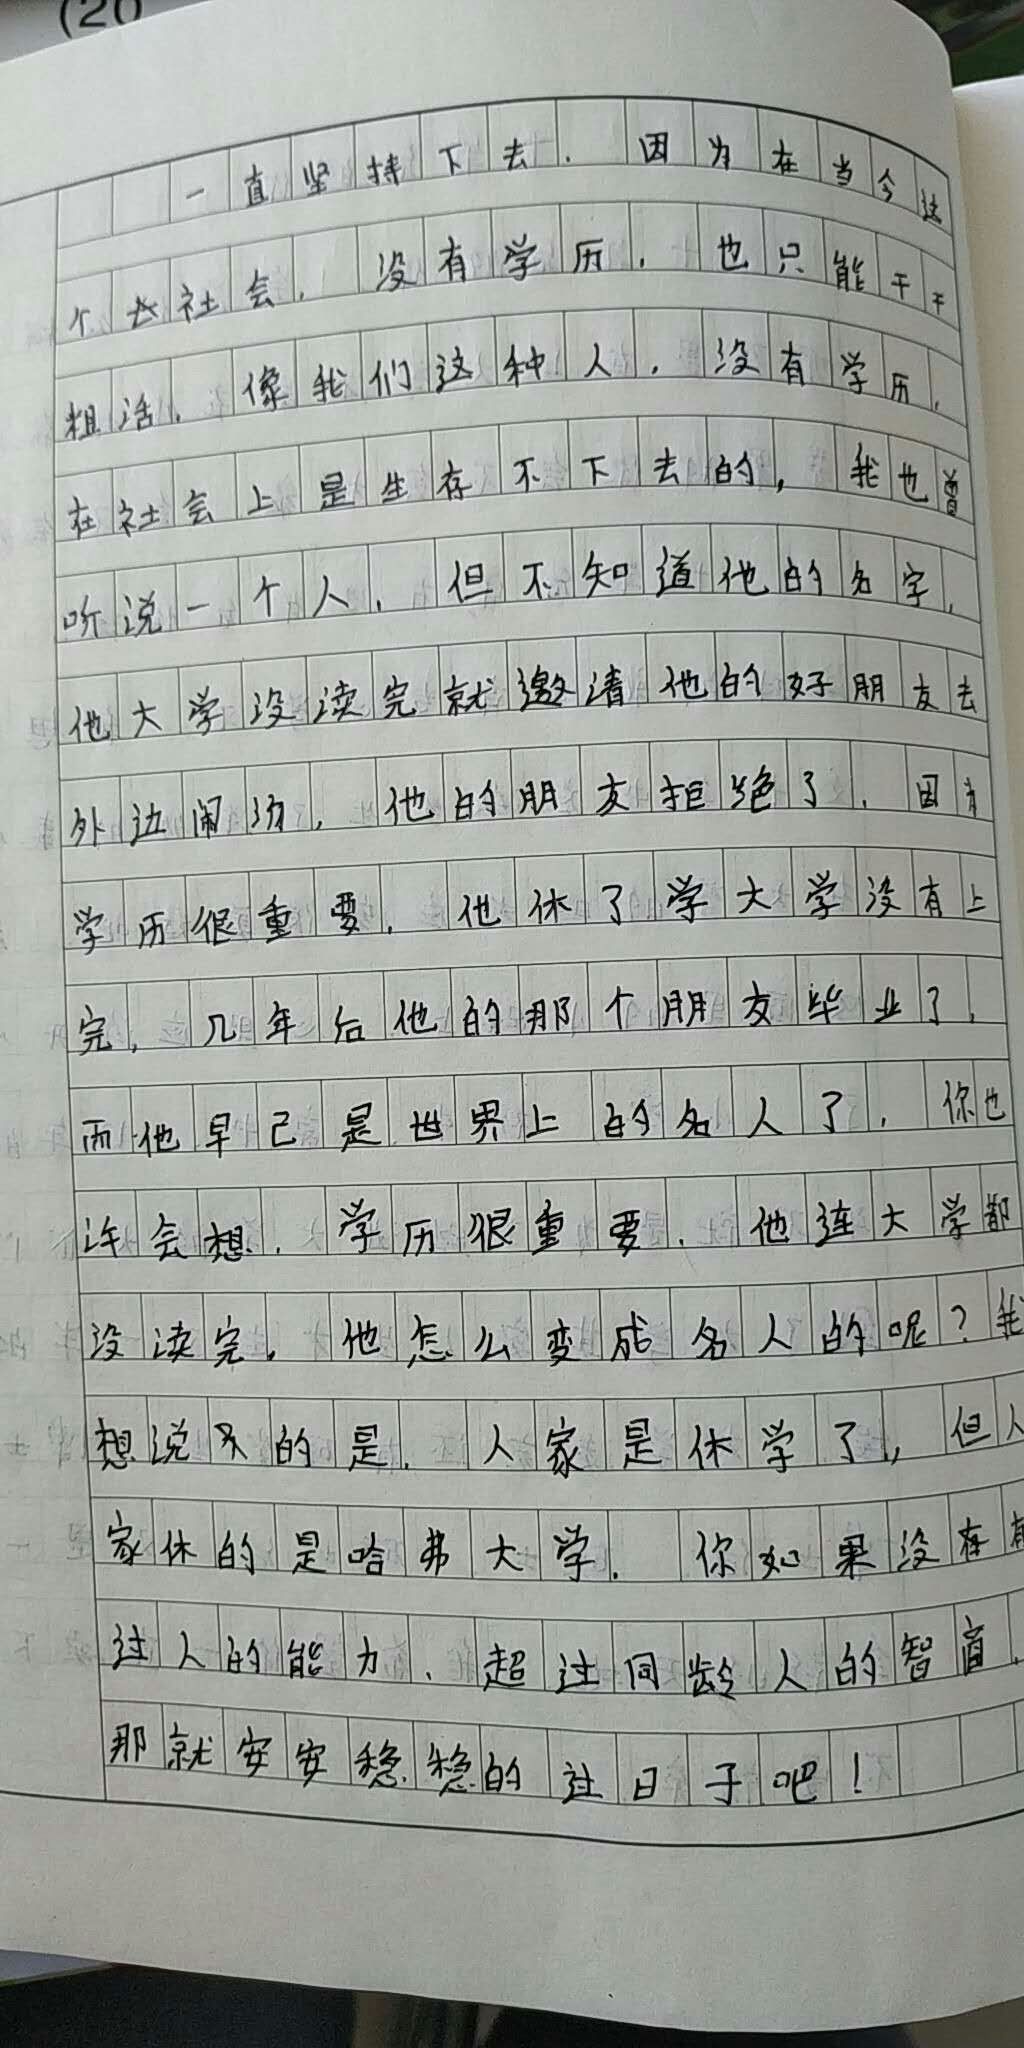 (20
一直坚持下去.因为在当今这
个社会.没有学历.也只能干干
粗活.像我们这种人.没有学历.
在社会上是生存不下去的,我也曾
听说一个人.但不知道他的名字.
他大学没读完就邀请他的好朋友去
外边闹汤.他的朋友拒绝了.因为
学历很重要.他休了学大学没有上
完,几年后他的那个朋友毕业了.
而他早已是世界上的名人了.你也
许会想.学历很重要.他连大学都
没读完.他怎么变成名人的呢?我
想说的是.人家是休学了,但人
家休的是哈弗大学.你如果没存有
过人的能力、超过同龄人的智商.
那就安安稳稳的过日子吧!